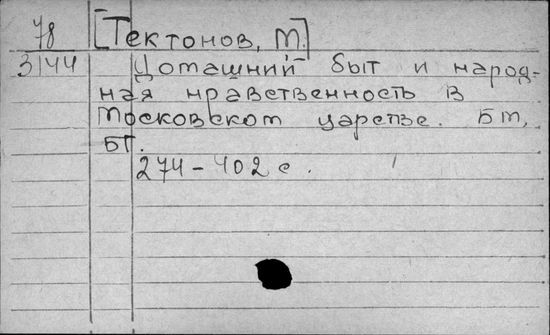 78 [Тектонов, М.]
3144 Домашний быт и народ-
ная нравственность в
Московском царстве. Бм,
БГ.
274-402 с.